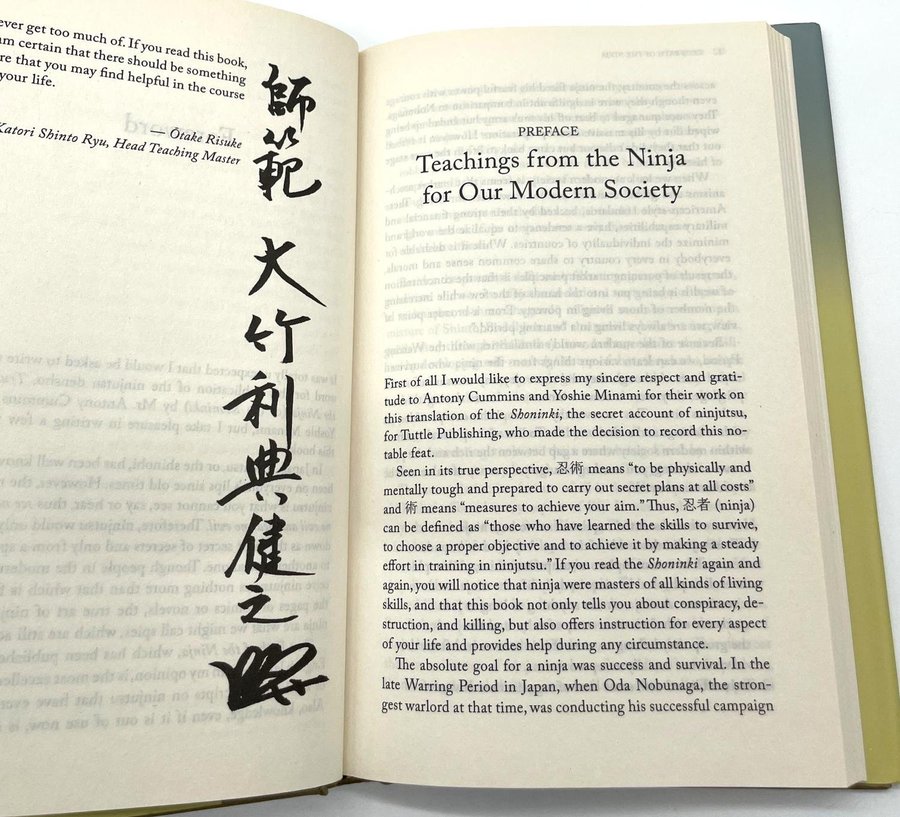 ever get too much of. If you read this book,
am certain that there should be something
re that you may find helpful in the course
your life.
— Ōtake Risuke
Katori Shinto Ryu, Head Teaching Master
師範 大竹利典健之
PREFACE
Teachings from the Ninja
for Our Modern Society
First of all I would like to express my sincere respect and grati-
tude to Antony Cummins and Yoshie Minami for their work on
this translation of the Shoninki, the secret account of ninjutsu,
for Tuttle Publishing, who made the decision to record this no-
table feat.
Seen in its true perspective, 忍術 means “to be physically and
mentally tough and prepared to carry out secret plans at all costs”
and 術 means “measures to achieve your aim.” Thus, 忍者 (ninja)
can be defined as “those who have learned the skills to survive,
to choose a proper objective and to achieve it by making a steady
effort in training in ninjutsu.” If you read the Shoninki again and
again, you will notice that ninja were masters of all kinds of living
skills, and that this book not only tells you about conspiracy, de-
struction, and killing, but also offers instruction for every aspect
of your life and provides help during any circumstance.
The absolute goal for a ninja was success and survival. In the
late Warring Period in Japan, when Oda Nobunaga, the stron-
gest warlord at that time, was conducting his successful campaign